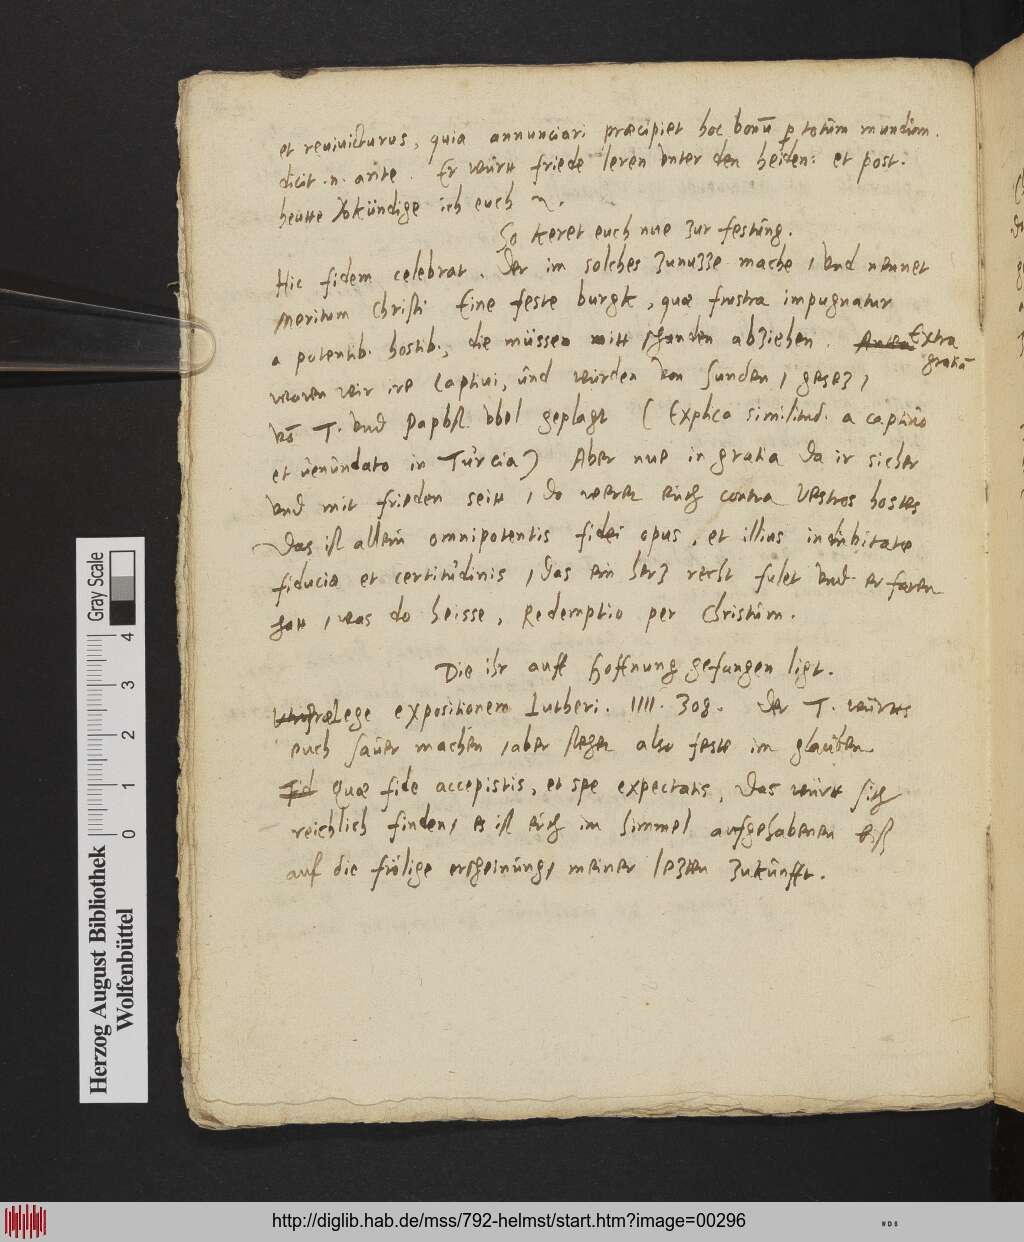 et reuiuicturus, quia annunciari præcipiet hoc bonū p totum mundum.
dicit .n. ante. Er württ friede leren vnter den heiden: et post.
heutte vokündige ich euch
So keret euch nue zur festung.
Hic fidem celebrat. Der im solches zunuzze mache, vnd nennet
meritum Christi Eine feste burgk, quæ frustra impugnatur
a potentib. hostib., die müssen mitt schanden abziehen. Extra
gratiā
waren wir ire captiui, und würden von sunden, gesez,
T. vnd Papbst vbel geplagt (Explica similitud. a captiuo
et uenundato in Turcia) Aber nue in gratia da ir sicher
vnd mit frieden seitt, do weren euch contra vestros hostes
Das ist allein omnipotentis fidei opus, et illius indubitatæ
fiduciæ et certitudinis, das ein herz recht fulet vnd erfaren
hatt, was do heisse, Redemptio per Christum.
Die ihr auff hoffnung gefangen ligt.
Lege expositionem Lutheri. IIII. 308. Der T. württs
euch sauer machen, aber steget also feste im glauben
Quæ fide accepistis, et spe expectatis, Das württ sich
reichlich finden, es ist euch im himmel aufgehabenen biß
auf die frölige erscheinung, meiner lezten zukunfft.
Gray Scale
4 3 2 1 0
Herzog August Bibliothek
Wolfenbüttel
http://diglib.hab.de/mss/792-helmst/start.htm?image=00296